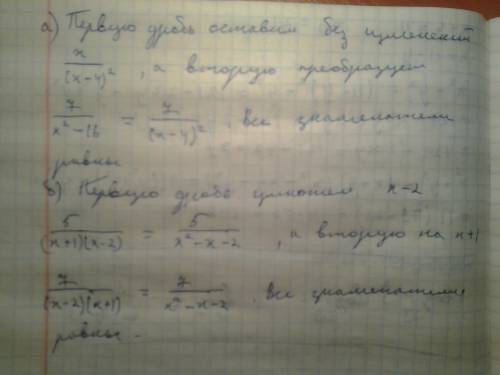 а) Первую дробь оставим без изменений
x/(x-4)², а вторую преобразует
7/x²-16 = 7/(x-4)². все знаменатели
равны
б) Первую дробь умножем x-2
5/(x+1)(x-2) = 5/x²-x-2, а вторую на x+1
7/(x-2)(x+1) = 7/x²-x-2. все знаменатели
равны.